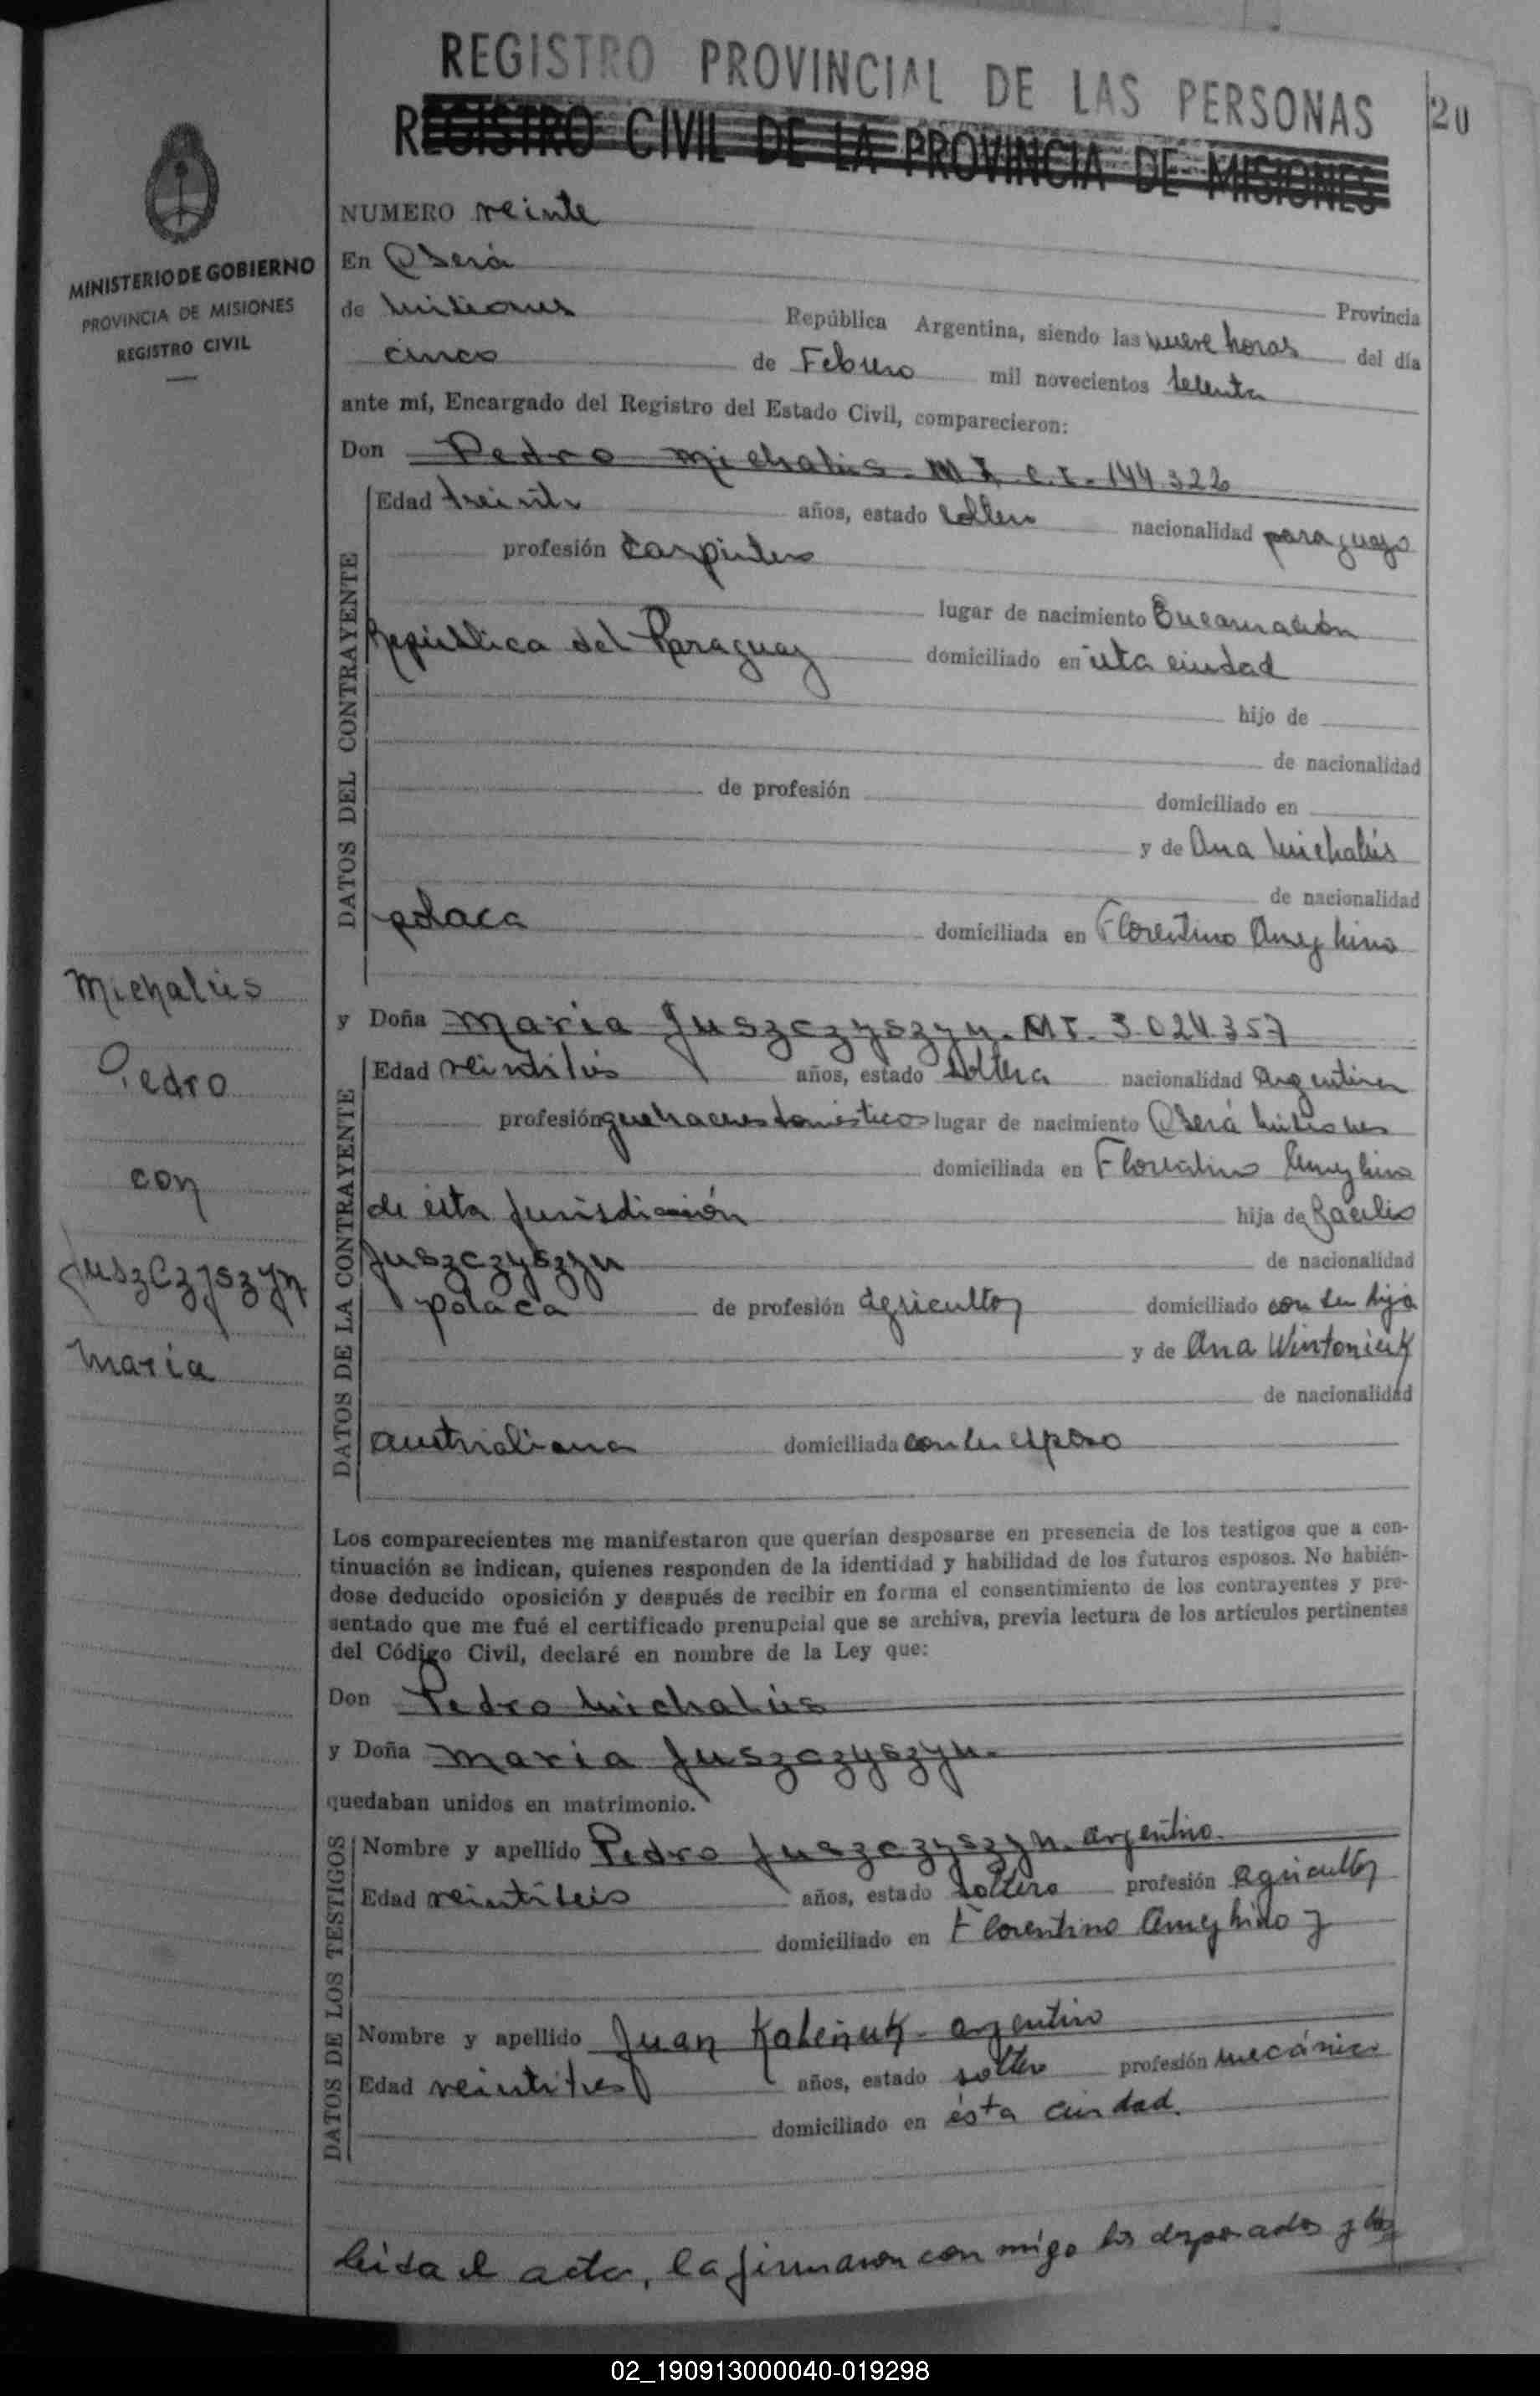 REGISTRO PROVINCIAL DE LAS PERSONAS
20
REGISTRO CIVIL DE LA PROVINCIA DE MISIONES
MINISTERIO DE GOBIERNO
PROVINCIA DE MISIONES
REGISTRO CIVIL
NUMERO veinte
En Oberá Provincia
de Misiones República Argentina, siendo las nueve horas del día
cinco de Febrero mil novecientos setenta
ante mí, Encargado del Registro del Estado Civil, comparecieron:
Don Pedro Michalús - M I C.I. - 144.322
DATOS DEL CONTRAYENTE
Edad treinta años, estado soltero nacionalidad paraguayo
profesión carpintero
lugar de nacimiento Encarnación
República del Paraguay domiciliado en esta ciudad
hijo de
de nacionalidad
de profesión domiciliado en
y de Ana Michalús
de nacionalidad
polaca domiciliada en Florentino Ameghino
y Doña Maria Juszczyszyn. MI. 3.024.357
DATOS DE LA CONTRAYENTE
Edad años, estado soltera nacionalidad Argentina
profesión quehaceres domésticos lugar de nacimiento Oberá Misiones
domiciliada en Florentino Ameghino
de ésta Jurisdicción hija de Bacilio
Juszczyszyn de nacionalidad
polaca de profesión agricultor domiciliado con su hija
y de Ana Wintoniuk
de nacionalidad
australiana domiciliada con su esposo
Michalús
Pedro
con
Juszczyszyn
Maria
Los comparecientes me manifestaron que querían desposarse en presencia de los testigos que a con-
tinuación se indican, quienes responden de la identidad y habilidad de los futuros esposos. No habién-
dose deducido oposición y después de recibir en forma el consentimiento de los contrayentes y pre-
sentado que me fué el certificado prenupcial que se archiva, previa lectura de los artículos pertinentes
del Código Civil, declaré en nombre de la Ley que:
Don Pedro Michalús
y Doña Maria Juszczyszyn.
quedaban unidos en matrimonio.
DATOS DE LOS TESTIGOS
Nombre y apellido Pedro Juszczyszyn. argentino.
Edad veintiseis años, estado soltero profesión agricultor
domiciliado en Florentino Ameghino y
Nombre y apellido Juan - argentino
Edad veintitres años, estado soltero profesión mecánico
domiciliado en ésta ciudad.
leida el acta, la firmaron con migo los desposados y los
02_190913000040-019298